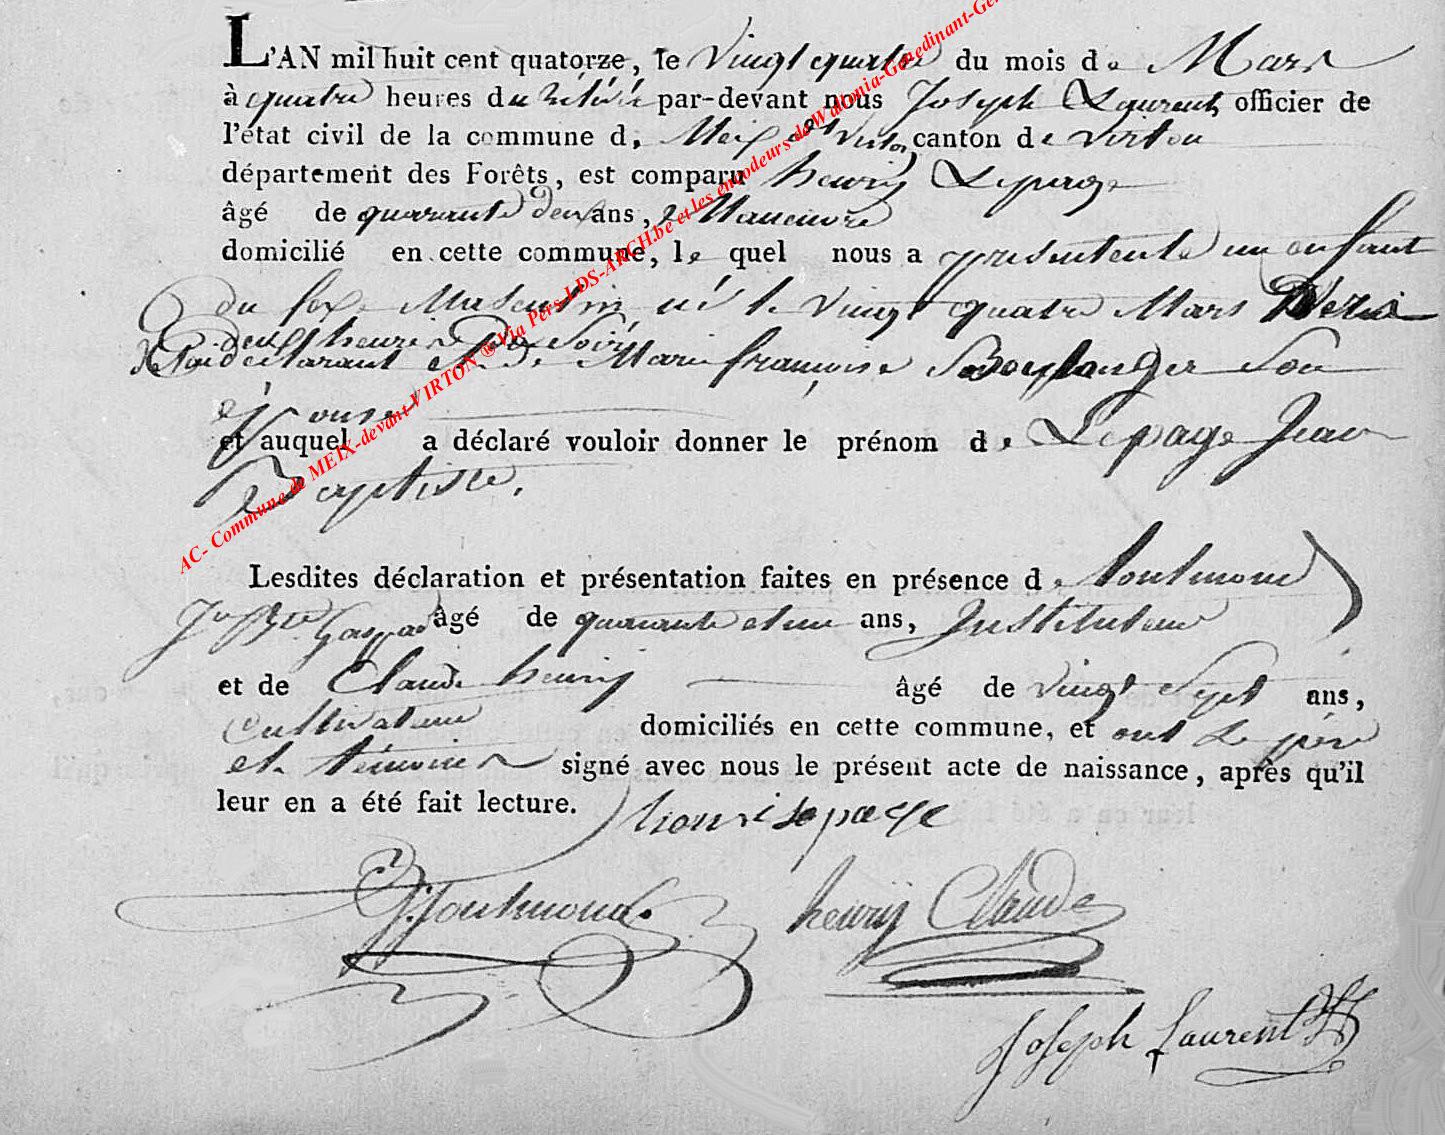 L'AN mil huit cent quatorze, le Vingt quatre du mois de Mars
à quatre heures du par-devant nous Joseph Laurent officier de
l'état civil de la commune de Meix dt Virton canton de Virton
département des Forêts, est comparu henry Lepage
âgé de quarante deux ans, Maneuvre
domicilié en cette commune, le quel nous a presentente un enfant
du sexe Masculin né le Vingt quatre Mars
deux heures du Soir
de lui declarant et de Marie françoise Boulanger Son
épouse
et auquel a déclaré vouloir donner le prénom de Lepage Jean
Baptiste.
Lesdites déclaration et présentation faites en présence de toutmond
Gaspar âgé de quarante et un ans, Instituteur
et de Claude henry âgé de vingt Sept ans,
Cultivateur domiciliés en cette commune, et ont Le père
et témoins signé avec nous le présent acte de naissance, après qu'il
leur en a été fait lecture.
henri le page
J. G. toutmond. henrÿ Claude
Joseph Laurent
AC- Commune de MEIX-devant VIRTON ® Via Pers-LDS-ARCH.be et les encodeurs de Waltonia-Genedinant-Gen